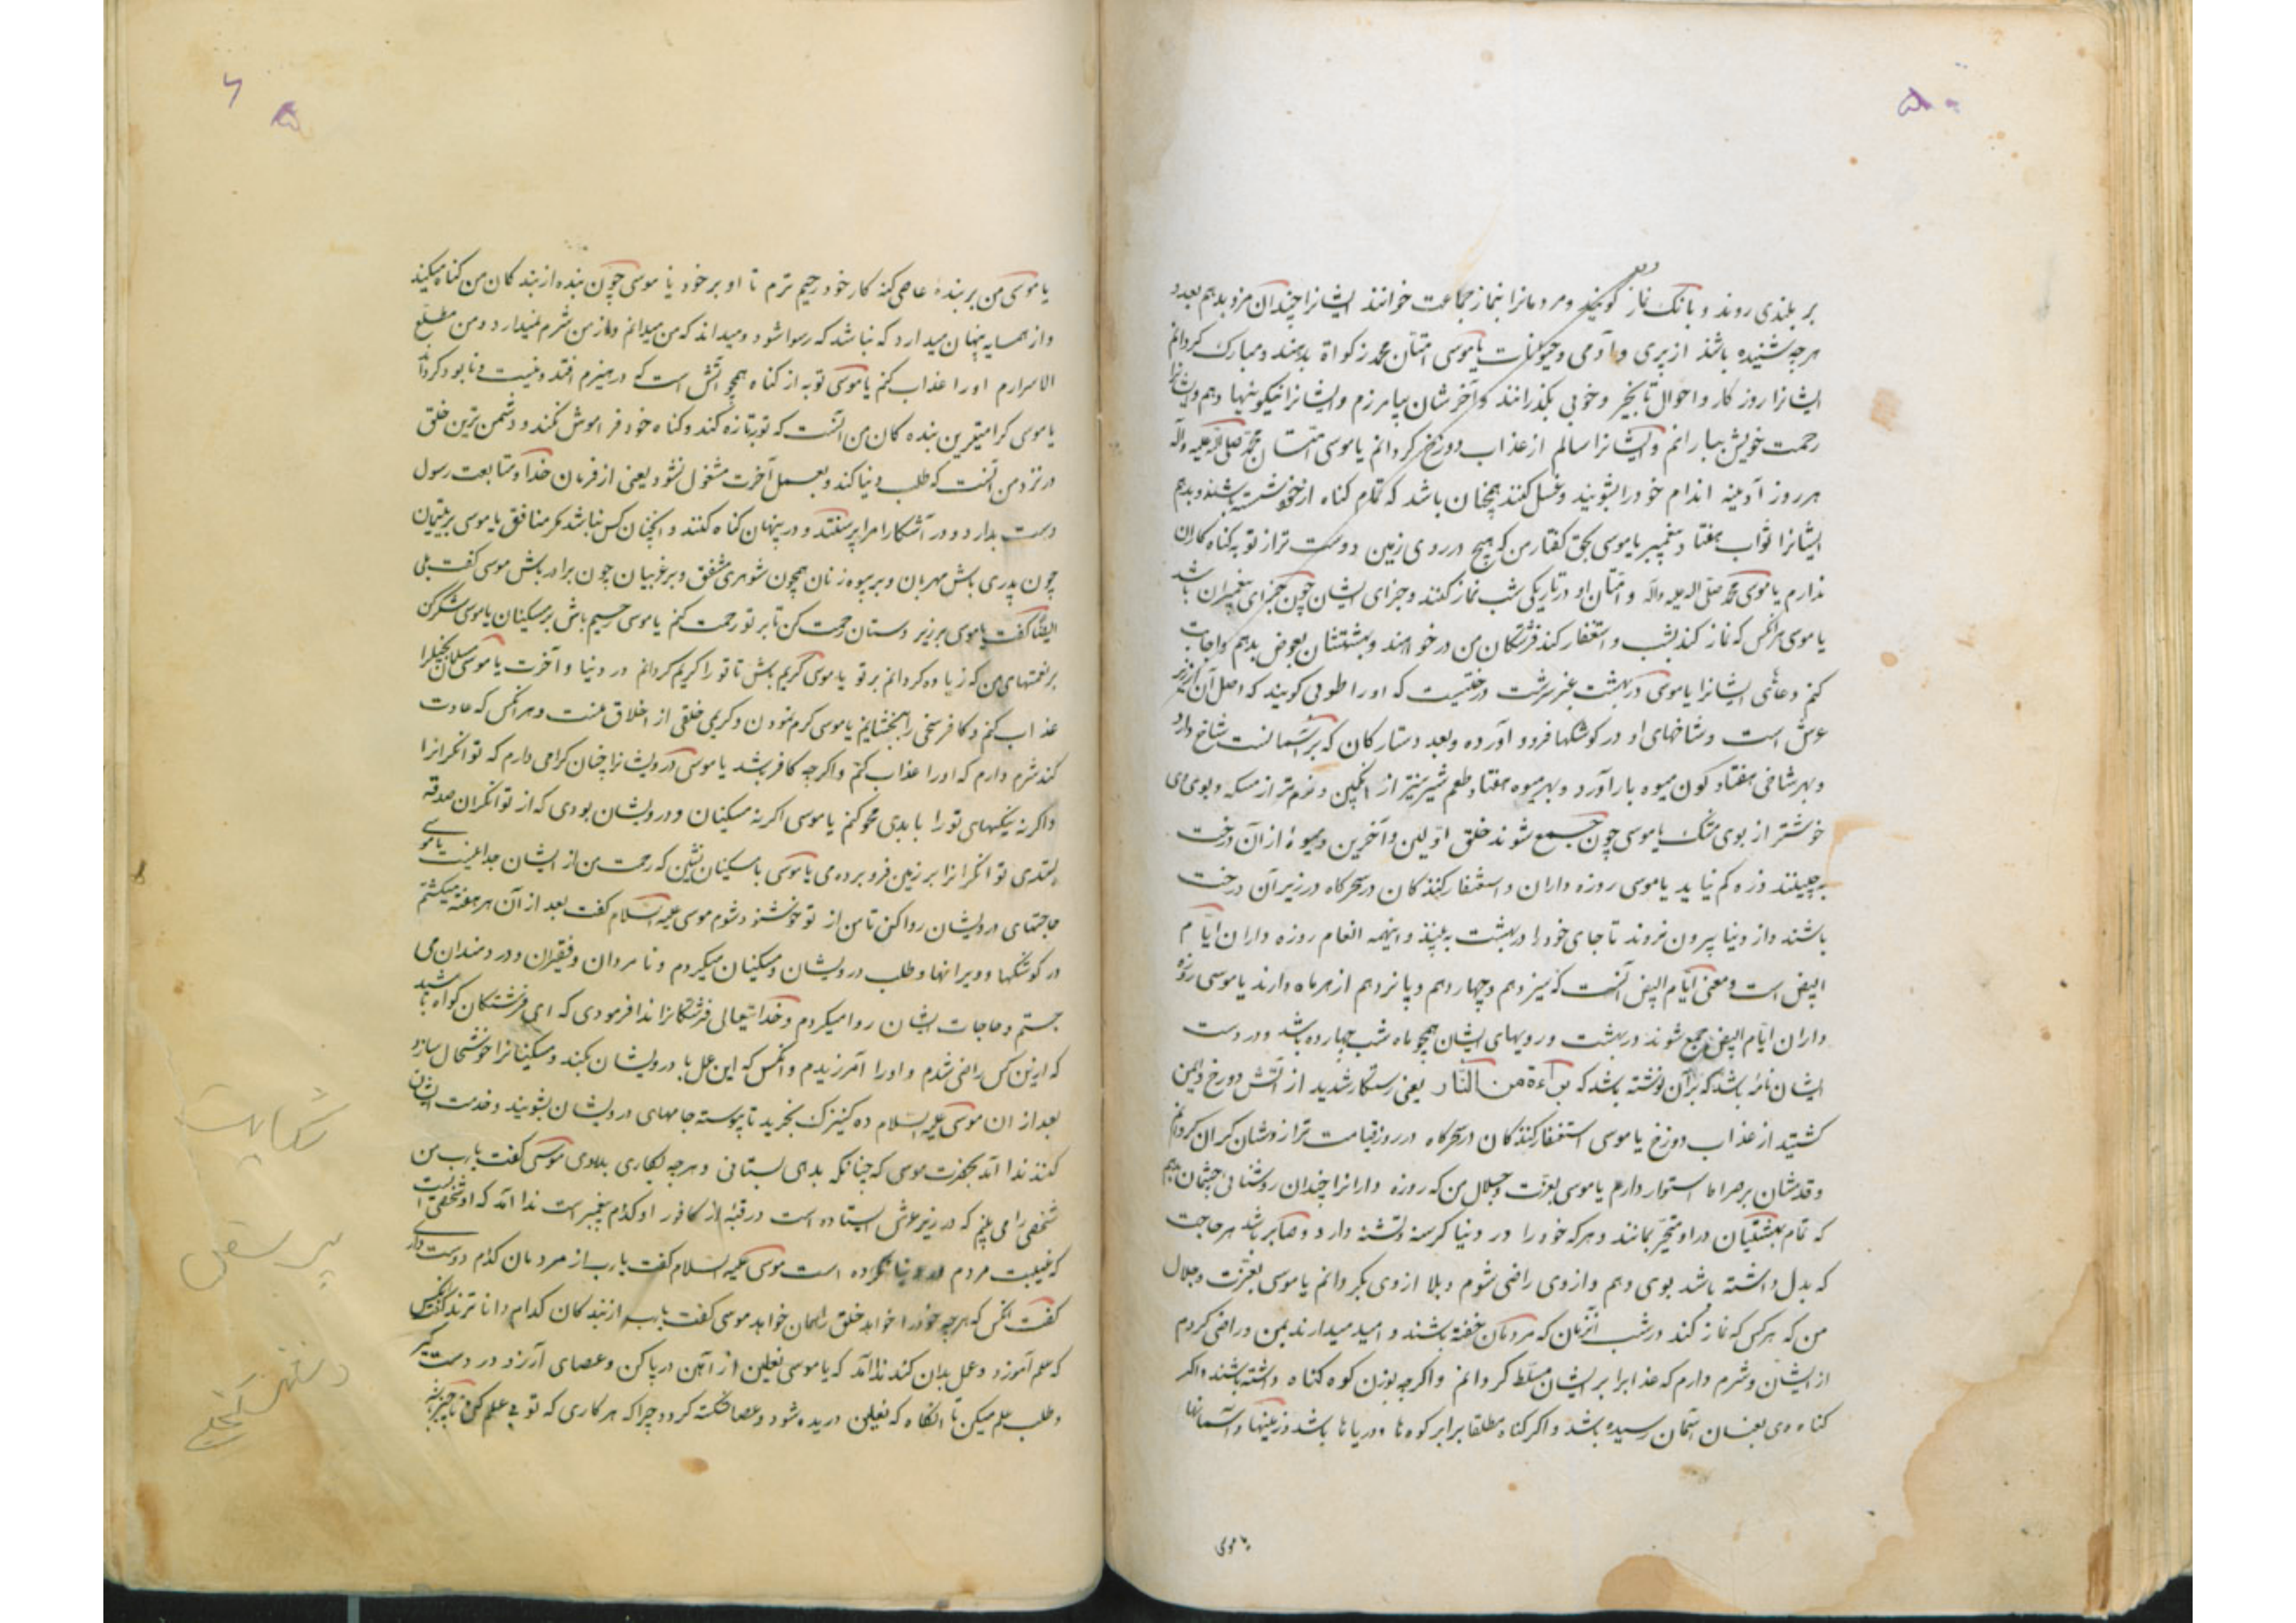 ۵
بر بلندی روند و بانک نماز کویند و مردمانرا بنماز جماعت خوانند ایشانرا چندان مزد بدهم بعدد
هرچه شنیده باشد از پری و آدمی و حیوانات یا موسی امتان محمد زکواة بدهند و مبارک کردانم
ایشانرا روزکار و احوال تا بخیر و خوبی بکذرانند و آخرشان بیامرزم و ایشانرا نیکوییها دهم و ایشانرا
رحمت خویش ببارانم و ایشانرا سالم از عذاب دوزخ کردانم یا موسی امتان محمد صلی الله علیه وآله
هر روز آدینه اندام خود را بشویند و غسل کنند همچنان باشد که تمام کناه از خود شسته باشند و بدهم
ایشانرا ثواب هفتاد پیغمبر یا موسی بحق کفتار من که هیچ در روی زمین دوست تر از توبه کناه کاران
ندارم یا موسی محمد صلی الله علیه وآله و امتان او در تاریکی شب نماز کنند و جزای ایشان چون جزای پیغمبران باشد
یا موسی هر آنکس که نماز کند بشب و استغفار کند فرشتکان من درخواهند و بهشتشان بعوض بدهم و اجابت
کنم دعاهای ایشانرا یا موسی در بهشت عنبر سرشت درختیست که او را طوبی کویند که اصل آن از زیر
عرش است و شاخهای او در کوشکها فرود آورده و بعدد ستارکان که بر آسمانست شاخ دارد
و بهر شاخی هفتاد کون میوه بار آورد و بهر میوه هفتاد طعم شیرینتر از انکبین و نرم تر از مسکه و بوی وی
خوشتر از بوی مشک یا موسی چون جمع شوند خلق اولین و آخرین و میوهٔ از آن درخت
بچینند ذره کم نیاید یا موسی روزه داران و استغفار کنندکان در سحرکاه در زیر آن درخت
باشند و از دنیا بیرون نروند تا جای خود را در بهشت به بینند و اینهمه انعام روزه داران ایام
البیض است و معنی ایام البیض آنست که سیزدهم و چهاردهم و پانزدهم از هر ماه دارند یا موسی روزه
داران ایام البیض جمع شوند در بهشت و رویهای ایشان همچو ماه شب چهارده باشد و در دست
ایشان نامهٔ باشد که بر آن نوشته باشد که براءة من النار یعنی رستکار شدید از آتش دوزخ و ایمن
کشتید از عذاب دوزخ یا موسی استغفار کنندکان در سحرکاه در روز قیامت ترازوشان کران کردانم
و قدمشان بر صراط استوار دارم یا موسی بعزت و جلال من که روزه دارانرا چندان روشنائی چشمان بدهم
که تمام بهشتیان در او متحیر بمانند و هر که خود را در دنیا کرسنه و تشنه دارد و صابر باشد هر حاجت
که بدل داشته باشد بوی دهم و از وی راضی شوم و بلا از وی بکردانم یا موسی بعزت و جلال
من که هر کس که نماز کند در شب آنزمان که مردمان خفته باشند و امید میدارند بمن و راضی کردم
از ایشان و شرم دارم که عذابرا بر ایشان مسلط کردانم و اکرچه بوزن کوه کناه داشته باشند و اکر
کناه وی بعنان آسمان رسیده باشد و اکر کناه مطلقا برابر کوه ها و دریاها باشد و زمینها و آسمانها
یا موسی
۶
یا موسی من بر بندهٔ عاصی کنه کار خود رحیم ترم تا او بر خود یا موسی چون بنده از بندکان من کناه میکند
و از همسایه پنهان میدارد که نباشد که رسوا شود و میداند که من میدانم و از من شرم نمیدارد و من مطلع
الاسرارم او را عذاب کنم یا موسی توبه از کناه همچو آتش است که در هیزم افتد و نیست و نابود کرداند
یا موسی کرامیترین بنده کان من آنست که توبه تازه کند و کناه خود فراموش نکند و دشمن ترین خلق
در نزد من آنست که طلب دنیا کند و بعمل آخرت مشغول نشود یعنی از فرمان خدا و متابعت رسول
دست بدارد و در آشکارا مرا پرستند و در پنهان کناه کنند و آنچنان کس نباشد مکر منافق یا موسی بر یتیمان
چون پدری باش مهربان و بر بیوه زنان همچون شوهری مشفق و بر غریبان چون برادر باش موسی کفت بلی
ایضا کفت یا موسی بر زیر دستان رحمت کن تا بر تو رحمت کنم یا موسی رحیم باش بر مسکینان یا موسی شکر کن
بر نعمتهای من که زیاده کردانم بر تو یا موسی کریم باش تا تو را کریم کردانم در دنیا و آخرت یا موسی مسلمان بخیل را
عذاب کنم و کافر سخی را ببخشایم یا موسی کرم نمودن و کریمی خلقی از اخلاق منست و هر آنکس که عادت
کند شرم دارم که او را عذاب کنم و اکرچه کافر باشد یا موسی درویشانرا چنان کرامی دارم که توانکرانرا
و اکرنه نیکیهای تو را با بدی محو کنم یا موسی اکر نه مسکینان و درویشان بودی که از توانکران صدقه
بستدی توانکرانرا بر زمین فرو بردمی یا موسی با مسکینان نشین که رحمت من از ایشان جدا نیست یا موسی
حاجتهای درویشان روا کن تا من از تو خوشنود شوم موسی علیه السلام کفت بعد از آن هر هفته میکشتم
در کوشکها و ویرانها و طلب درویشان و مسکینان میکردم و نامردان و فقیران و دردمندان می
جستم و حاجات ایشان روا میکردم و خدایتعالی فرشتکانرا ندا فرمودی که ای فرشتکان کواه باشید
که از این کس راضی شدم و او را آمرزیدم و آنکس که این عمل با درویشان بکند و مسکینانرا خوشحال سازد
بعد از ان موسی علیه السلام ده کنیزک بخرید تا پیوسته جامهای درویشان بشویند و خدمت ایشان
کنند ندا آمد بحضرت موسی که چنانکه بدهی بستانی و هرچه بکاری بدروی موسی کفت یا رب من
شخصی را می بینم که در زیر عرش ایستاده است در قبهٔ از کافور او کدام پیغمبر است ندا آمد که او شخصی است
که غیبت مردم در دنیا نکرده است موسی علیه السلام کفت یا رب از مردمان کدام دوست داری
کفت آنکس که هرچه خود را خواهد خلق را همان خواهد موسی کفت یا رب از بندکان کدام دانا ترند کفت آنکس
که علم آموزد و عمل بدان کند ندا آمد که یا موسی نعلین از آهن در پا کن و عصای آن در دست کیر
و طلب علم میکن تا آنکاه که نعلین دریده شود و عصا شکسته کردد چرا که هر کاری که تو بی علم کنی
شکایت